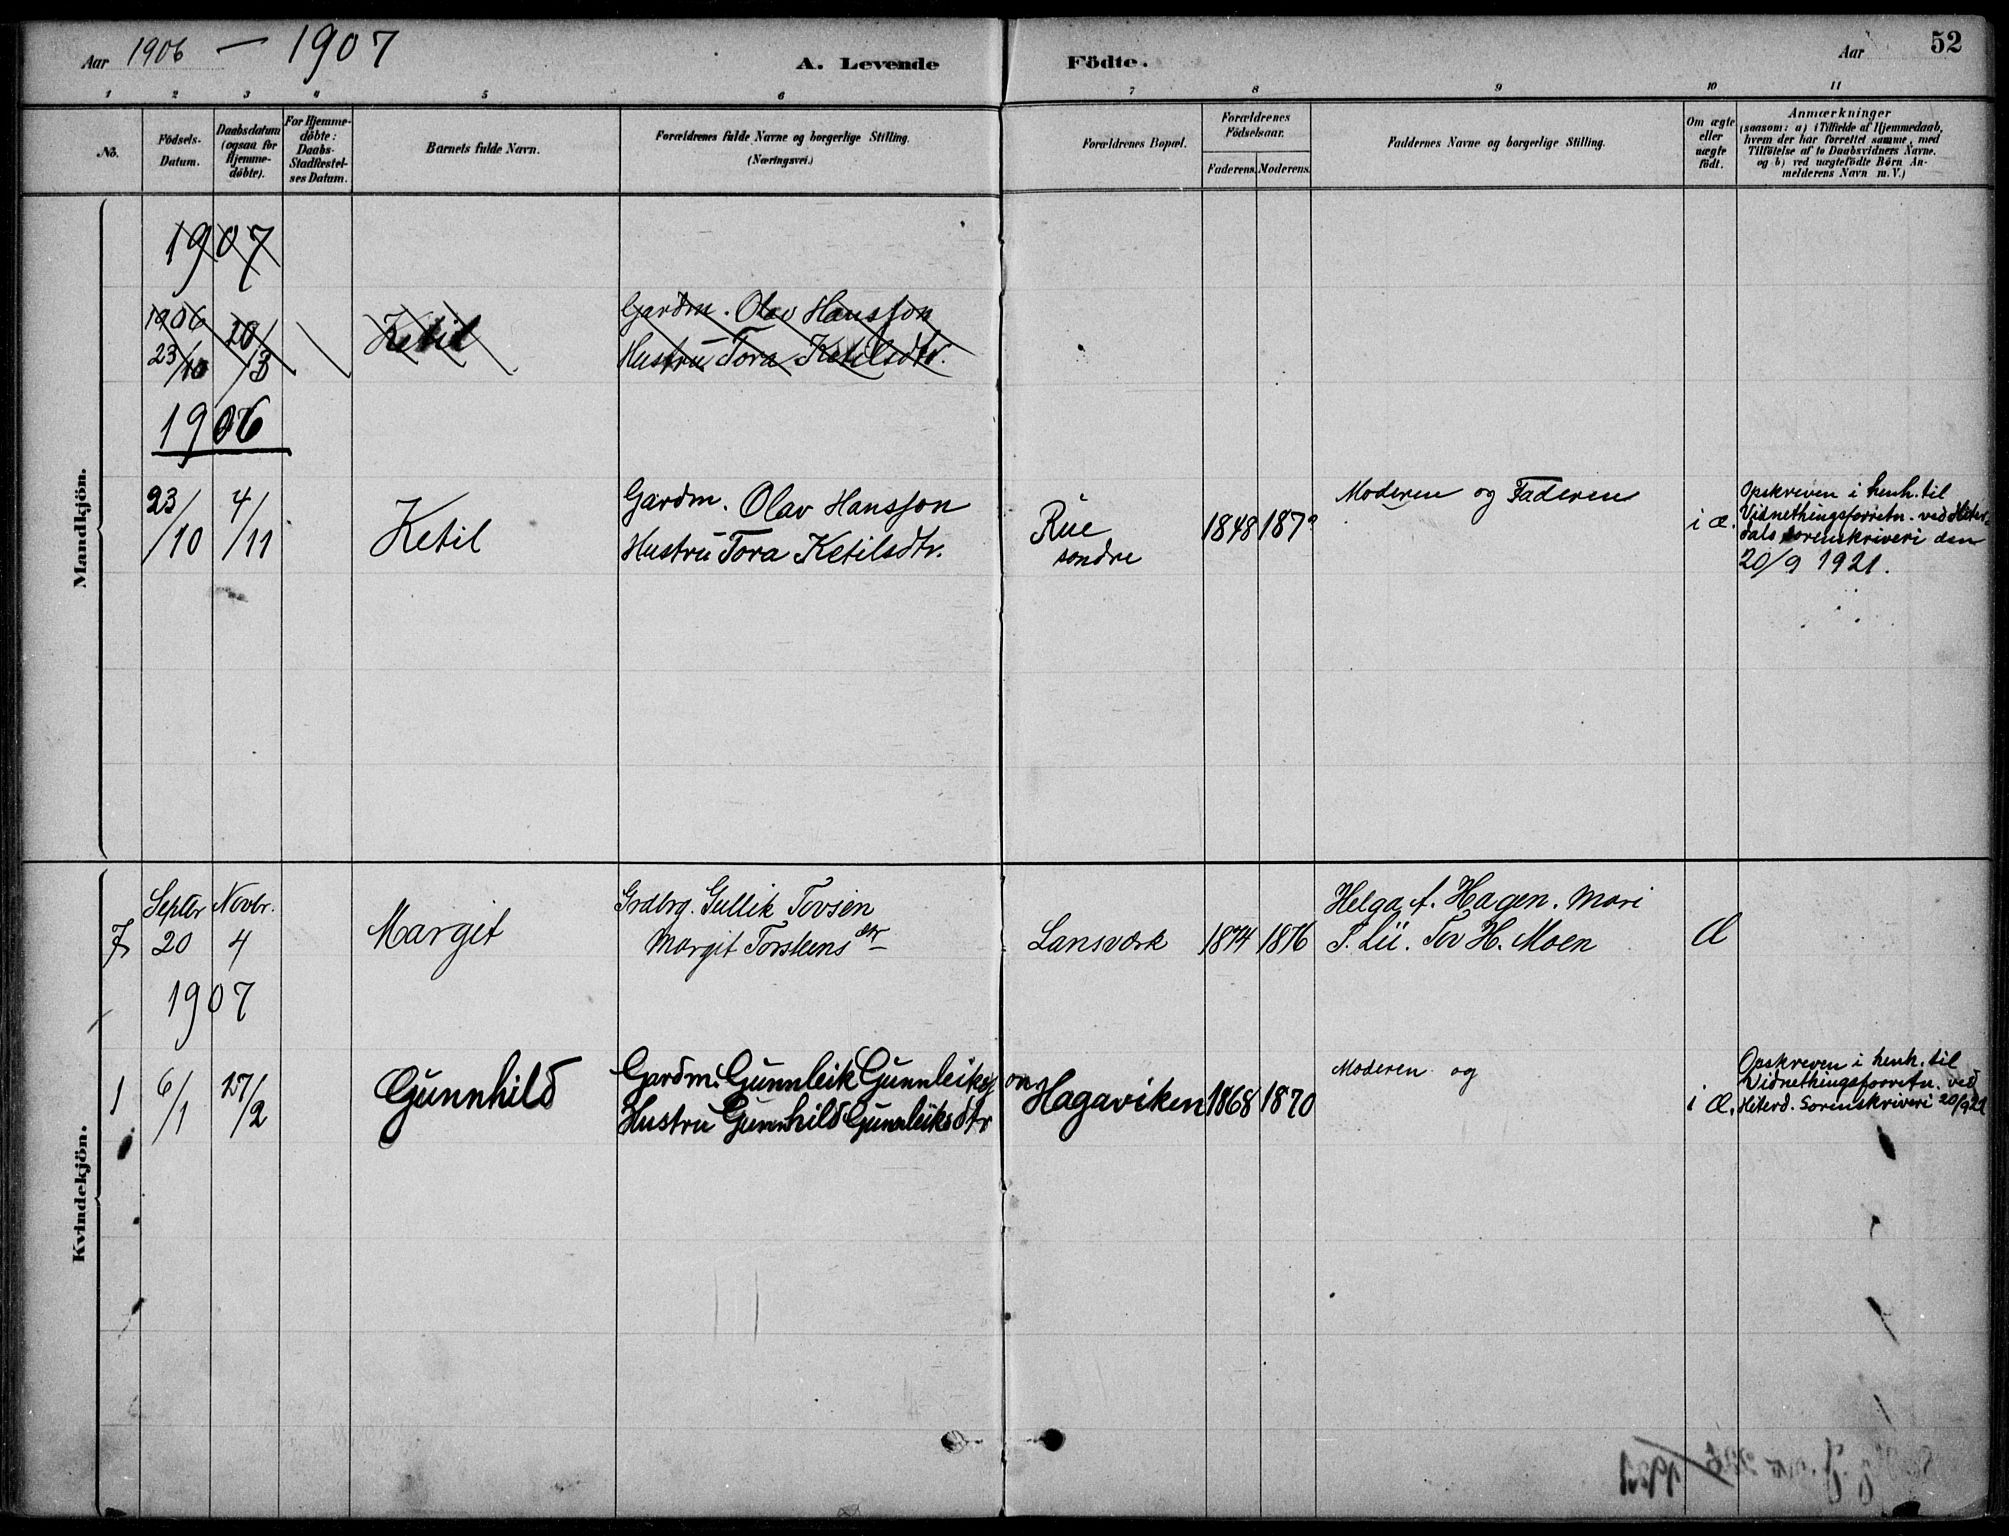 Aar 1906 — 1907
A. Levende Födte.
Aar
52
1 2 3 4 5 6 7 8 9 10 11
No.
Födsels-
Datum.
Daabsdatum
(ogsaa for
Hjemme-
döbte).
For Hjemme-
döbte:
Daabs-
Stadfæstel-
ses Datum.
Barnets fulde Navn.
Forældrenes fulde Navne og borgerlige Stilling.
(Næringsvei.)
Forældrenes Bopæl.
Forældrenes
Födselsaar.
Faderens. Moderens.
Faddernes Navne og borgerlige Stilling.
Om ægte
eller
uægte
födt.
Anmærkninger
(saasom: a) i Tilfælde af Hjemmedaab,
hvem der har forrettet samme, med
Tilföielse af to Daabsvidners Navne.
og b) ved uægtefödte Börn An-
melderens Navn m. V.)
Mandkjön.
1907
1906
23/10 20/3 Ketil
Gardm. Olav Hansson
Hustru Tora Ketilsdtr.
1906
23/10 4/11 Ketil
Gardm. Olav Hansson
Hustru Tora Ketilsdtr.
Rue
søndre
1848 187?
Moderen og Faderen
i Æ.
Opskreven i henh. til
Vidnethingsforretn. ved Hiter-
dals Sorenskriveri den
20/9 1921.
Kvindekjön.
7
Septbr Novbr.
20 4
Margit
Grdbrg. Gullik Tovsen
Margit Torsteinsdtr
Lansværk 1874 1876
Helga A. Hagen. Mari
T. Lii. Tov H. Moen
Æ
1907
1 6/1 27/2 Gunnhild
Gardm. Gunnleik Gunnleikson
Hustru Gunnhild Gunnleiksdtr
Hagaviken 1868 1870
Moderen og
i Æ.
Opskreven i henh. til
Vidnethingsforretn. ved
Hiterd. Sorenskriveri 20/9 21